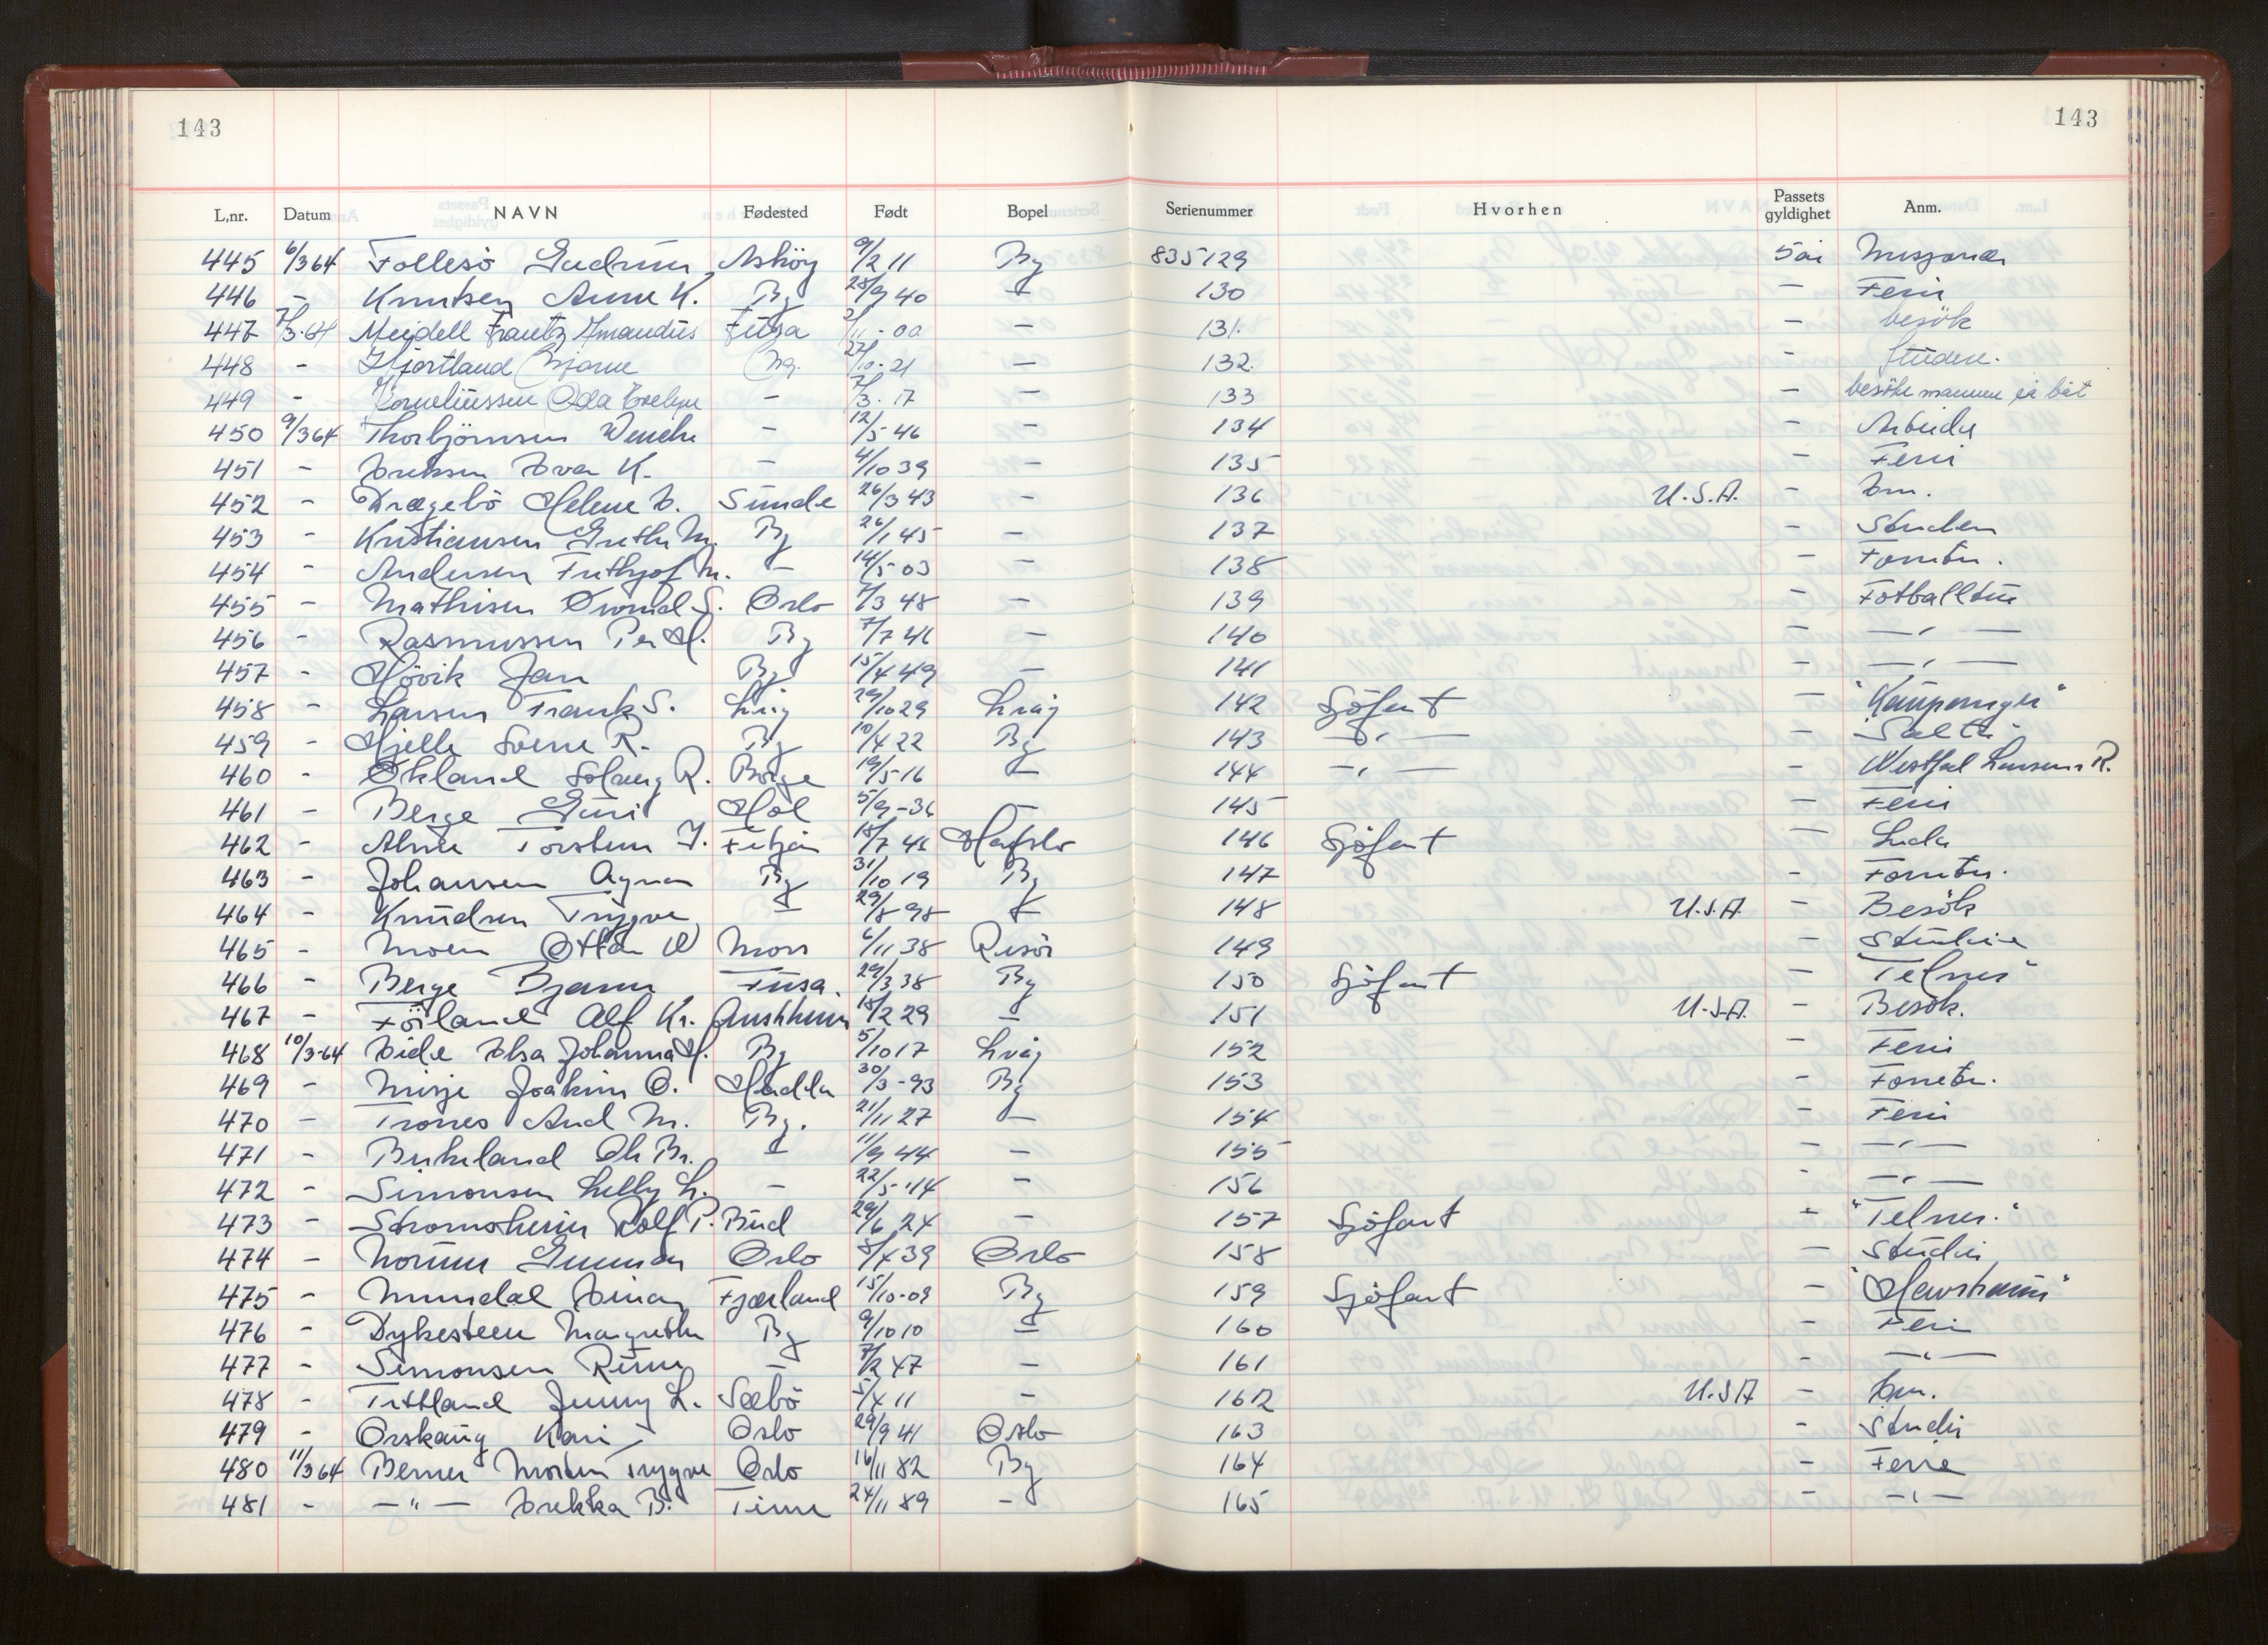 143 143
L,nr. Datum NAVN Fødested Født Bopel Serienummer Hvorhen Passets gyldighet Anm.
445 6/3 64 Follesö Gudrun Asköy 9/2 11 By 835129 5 år Misjonær
446 - Knutsen Anne K. By 28/9 40 - 130 - Ferie
447 7/3-64 Meidell Frantz Amandus Fusa 2/11-00 - 131. - besök
448 - Hjortland Bjarne Bg. 27/10-21 - 132. - studere.
449 - Corneliussen Oda Evelyn - 7/3-17 - 133 - besöke mannen på båt
450 9/3 64 Thorbjörnsen Wenche - 12/5-46 - 134 - Arbeide
451 - Eriksen Evar K. - 4/10 39 - 135 - Ferie
452 - Drægebö Helene E. Sunde 26/3 43 - 136 U.S.A. - Em.
453 - Kristiansen Grethe M. By 26/1 45 - 137 - Studere
454 - Andersen Frithjof M. - 14/5-03 - 138 - Forretn.
455 - Mathisen Øivind S. Oslo 7/3 48 - 139 - Fotballtur
456 - Rasmussen Per H. By 7/7 46 - 140 - —"—
457 - Hövik Jan By 15/4 49 - 141 - —"—
458 - Larsen Frank S. Lvåg 29/10 29 Lvåg 142 Sjöfart - "Kaupanger"
459 - Hjelle Sverre R. By 10/4 22 By 143 —"— - "Salta"
460 - Økland Solveig R. Borge 19/5-16 - 144 —"— - Westfal Larsens R.
461 - Berge Guri Hol 5/9-36 - 145 - Ferie
462 - Alme Torstein J. 18/7 46 Hafslo 146 Sjöfart -
463 - Johansen Agnar By 31/10 19 By 147 - Forretn.
464 - Knudsen Trygve - 29/8-98 - 148 U.S.A. - Besök
465 - Moen Ottar W Moss 6/11 38 Risör 149 - Studie
466 - Berge Bjarne Fusa. 29/3 38 By 150 Sjöfart - "Telnes"
467 - Förland Alf Kr. Austrheim 18/2 29 - 151 U.S.A. - Besök.
468 10/3-64 Eide Elsa Johanna H. By 5/10 17 Lvåg 152 - Ferie
469 - Misje Joakim O. Herdla 30/3-93 By 153 - Forretn.
470 - Trones Aud M. By. 21/11 27 - 154 - Ferie
471 - Birkeland Ole Br. - 11/9 44 - 155 - —"—
472 - Simonsen Lilly L. - 22/5-14 - 156 - —"—
473 - Stromsheim Rolf P. Bud 29/6 24 - 157 Sjöfart - "Telnes."
474 - Norum Gunnar Oslo 8/4 39 Oslo 158 - Studie
475 - Mundal Einar Fjærland 15/10-09 By 159 Sjöfart - "Havstraum"
476 - Dykesteen Margrethe By 9/10 10 - 160 - Ferie
477 - Simonsen Rune - 7/2 47 - 161 - —"—
478 - Tittland Jenny L. Sæbö 5/4 11 - 162 U.S.A - Em.
479 - Orskaug Kari Oslo 29/9 41 Oslo 163 - Studie
480 11/3 64 Berner Morten Trygve Oslo 16/11 82 By 164 - Ferie
481 - —"— Erikka B. Time 24/11 89 - 165 - —"—